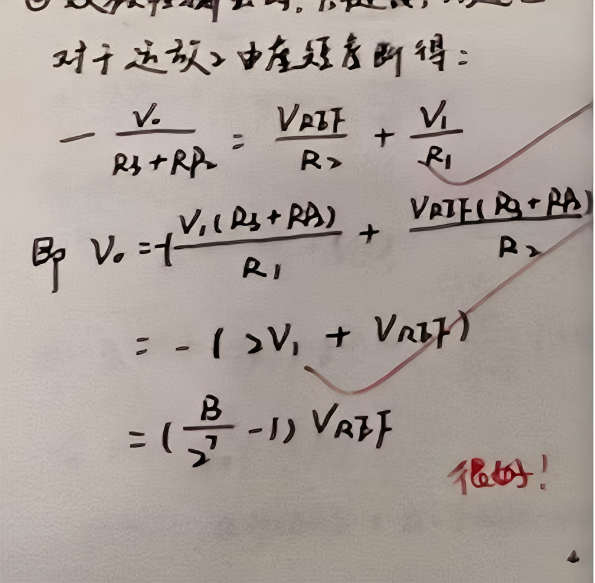 对于运放2由虚短虚断得:
- V₀/(R₃+RP₂) = VREF/R₂ + V₁/R₁
即 V₀ = -(V₁(R₃+RP₂)/R₁ + VREF(R₃+RP₂)/R₂
= -(2V₁ + VREF)
= (B/2⁷ - 1) VREF
很好!